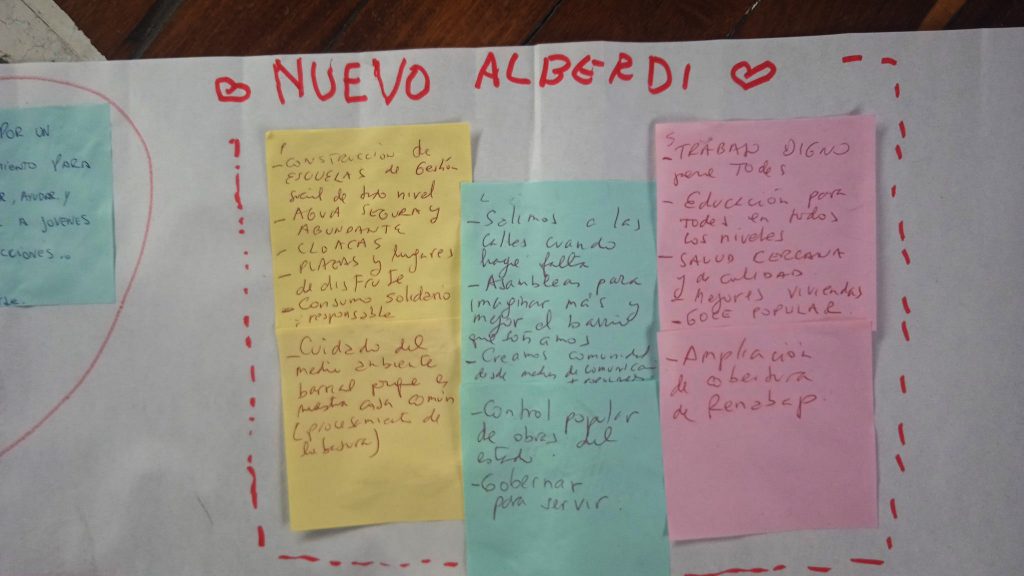 NUEVO ALBERDI
POR UN
MIENTO PARA
AYUDAR Y
A JOVENES
CCIONES...
- CONSTRUCCIÓN de
ESCUELAS de Gestión
social de todo nivel
- AGUA SEGURA y
ABUNDANTE
- CLOACAS
- PLAZAS y lugares
de disFrute
- Consumo solidario
responsable
- Cuidado del
medio ambiente
barrial porque es
nuestra casa común
(procesamiento de
la basura)
L
- Salimos a las
calles cuando
haga falta
- Asambleas para
imaginar más y
mejor el barrio
que soñamos
- Creamos comunidad
desde medios de comunica
- Control popular
de obras del
estado.
- Gobernar
para servir.
S
- TRABAJO DIGNO
para Todes
- Educación para
todes en todos
los niveles
- SALUD CERCANA
y de calidad
Mejores viviendas
- GOCE POPULAR.
- Ampliación
de cobertura
de Renabap.